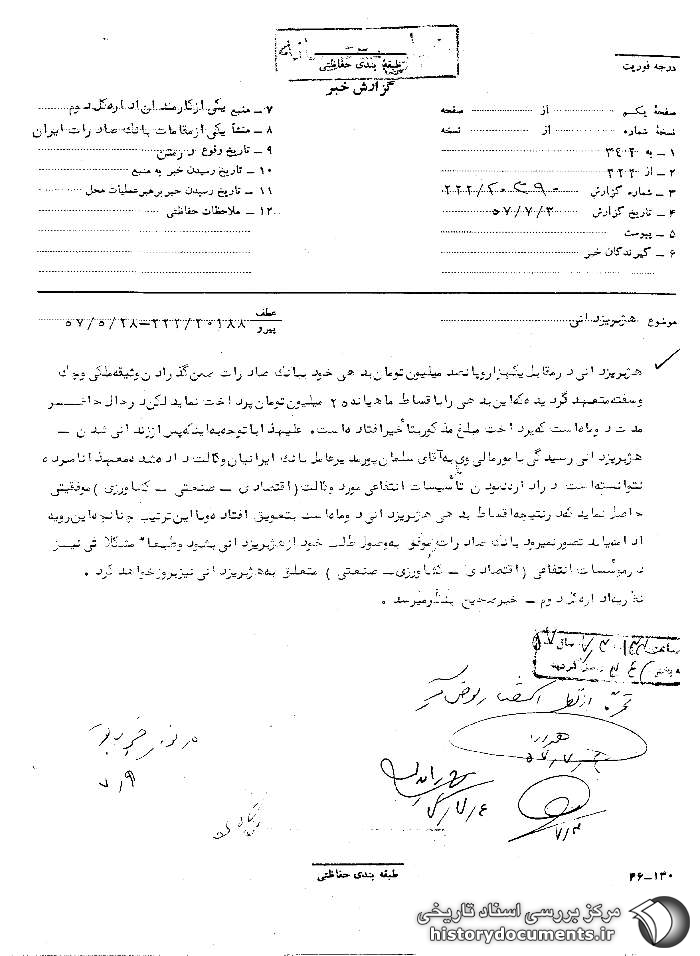 طبقه بندی حفاظتی
گزارش خبر
درجه فوریت
صفحهٔ یکم از صفحه
نسخهٔ شماره از نسخه
۱ ـ به ۳۴۲
۲ ـ از ۲۲۲
۳ ـ شماره گزارش ۲۲۲/۲۰۳۹۰
۴ ـ تاریخ گزارش ۵۷/۷/۳
۵ ـ پیوست
۶ ـ گیرندگان خبر
۷ ـ منبع یکی از کارمندان اداره کل دوم
۸ ـ منشأ یکی از مقامات بانک صادرات ایران
۹ ـ تاریخ وقوع در متن
۱۰ ـ تاریخ رسیدن خبر به منبع
۱۱ ـ تاریخ رسیدن خبر برهبر عملیات محل
۱۲ ـ ملاحظات حفاظتی
موضوع هژبر یزدانی
عطف
پیرو ۲۲۲/۲۰۱۸۸ـ۵۷/۵/۲۸
هژبر یزدانی در مقابل یکهزار و پانصد میلیون تومان بدهی خود ببانک صادرات ضمن گذاردن وثیقه ملکی و چک
و سفته متعهد گردیده که این بدهی را با قساط ماهیانه ۲۵ میلیون تومان پرداخت نماید لکن در حال حاضر
مدت دو ماه است که پرداخت مبلغ مذکور بتأخیر افتاده است. علیهذا با توجه به اینکه پس از زندانی شدن ـ
هژبر یزدانی رسیدگی بامور مالی وی به آقای سلمان پور مدیرعامل بانک ایرانیان وکالت داده شده معهذا نامبرده
نتوانسته است در اداره نمودن تأسیسات انتفاعی مورد وکالت (اقتصادی ـ صنعتی ـ کشاورزی) موفقیتی
حاصل نماید که در نتیجه اقساط بدهی هژبر یزدانی دو ماه است بتعویق افتاده و با این ترتیب چنانچه این رویه
ادامه یابد تصور نمیرود بانک صادرات موفق به وصول طلب خود از هژبر یزدانی بشود و طبعاً مشکلاتی نیز
در مؤسسات انتفاعی (اقتصادی ـ کشاورزی ـ صنعتی) متعلق به هژبر یزدانی نیز بروز خواهد کرد.
نظریه اداره کل دوم ـ خبر صحیح بنظر میرسد.
۷/۹
۷/۴
طبقه بندی حفاظتی
۲۶ـ۱۳۰
مرکز بررسی اسناد تاریخی
historydocuments.ir